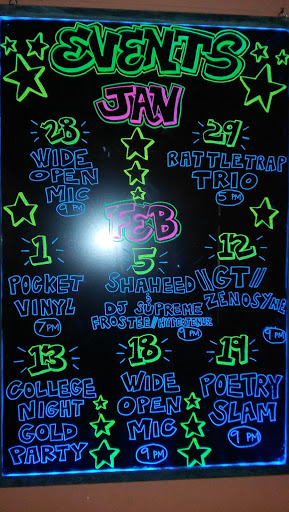 EVENTS
JAN
28
WIDE
OPEN
MIC
9 PM
29
RATTLETRAP
TRIO
5 PM
FEB
1
POCKET
VINYL
7 PM
5
SHAHEED
&
DJ SUPREME
FROSTEE//HYPOTENUZ
9 PM
12
//GT//
ZENOSYNE
9 PM
13
COLLEGE
NIGHT
GOLD
PARTY
18
WIDE
OPEN
MIC
9 PM
19
POETRY
SLAM
9 PM